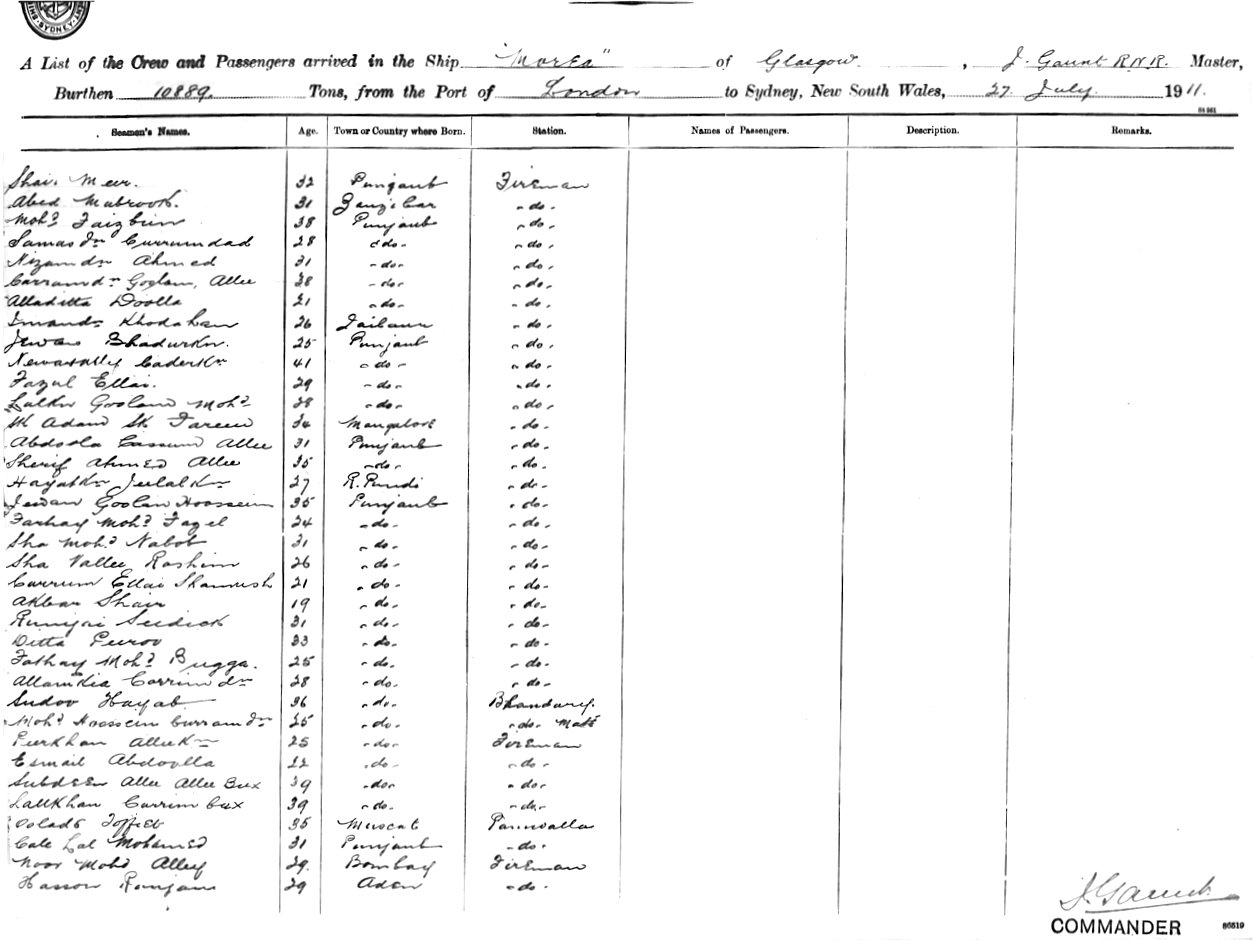 SYDNEY
A List of the Crew and Passengers arrived in the Ship "Morea" of Glasgow, J. Gaunt R.N.R. Master,
Burthen 10889. Tons, from the Port of London to Sydney, New South Wales, 27 July. 1911.
Seamen's Names. Age. Town or Country where Born. Station. Names of Passengers. Description. Remarks.
Shair Meer. 32 Punjaub Fireman
Abed Mabrook. 31 Zanzibar - do -
Moh'd Faizbin 38 Punjaub - do -
Samas Dn Currumdad 28 - do - - do -
Nizamdn Ahmed 31 - do - - do -
Carramdn Goolam, Allee 38 - do - - do -
Alladitta Doolla 21 - do - - do -
Imamdn Khodahan 26 - do -
Jewan Bhadurkn. 25 Punjaub - do -
Newazally Caderkn 41 - do - - do -
Fazul Ellai. 29 - do - - do -
Lalkn Goolam Moh'd 28 - do - - do -
Sk Adam Sk Fareed 34 Mangalore - do -
Abdoola Cassum Allee 31 Punjaub - do -
Sherif Ahmed Allee 35 - do - - do -
Hayatkn Jeelalkn 27 R. Pindi - do -
Jewan Goolam Hoossein 35 Punjaub - do -
Fathay Moh'd Fazel 24 - do - - do -
Sha Moh'd Nabob 31 - do - - do -
Sha Vallee Rashim 26 - do - - do -
Currum Ellai Shamush 21 - do - - do -
Akbar Shair 19 - do - - do -
Rumjai Seedick 31 - do - - do -
Ditta Peeroo 33 - do - - do -
Fathay Moh'd Bugga. 25 - do - - do -
Allamdia Corrimdn 28 - do - - do -
Hayab 36 - do - Bhandary.
Moh'd Hoossein Curramdn 25 - do - - do - Mate
Peerkhan Alleekn 25 - do - Fireman
Esmail Abdoolla 22 - do - - do -
Subdeen Allee Allee Bux 39 - do - - do -
Lallkhan Carrim bux 39 - do - - do -
35 Muscat Paniwalla
Cale Lal Mohamed 31 Punjaub - do -
Noor Mohd Alley 29. Bombay Fireman
Hassan Ramjam 29 Aden - do -
J Gaunt.
COMMANDER
86519